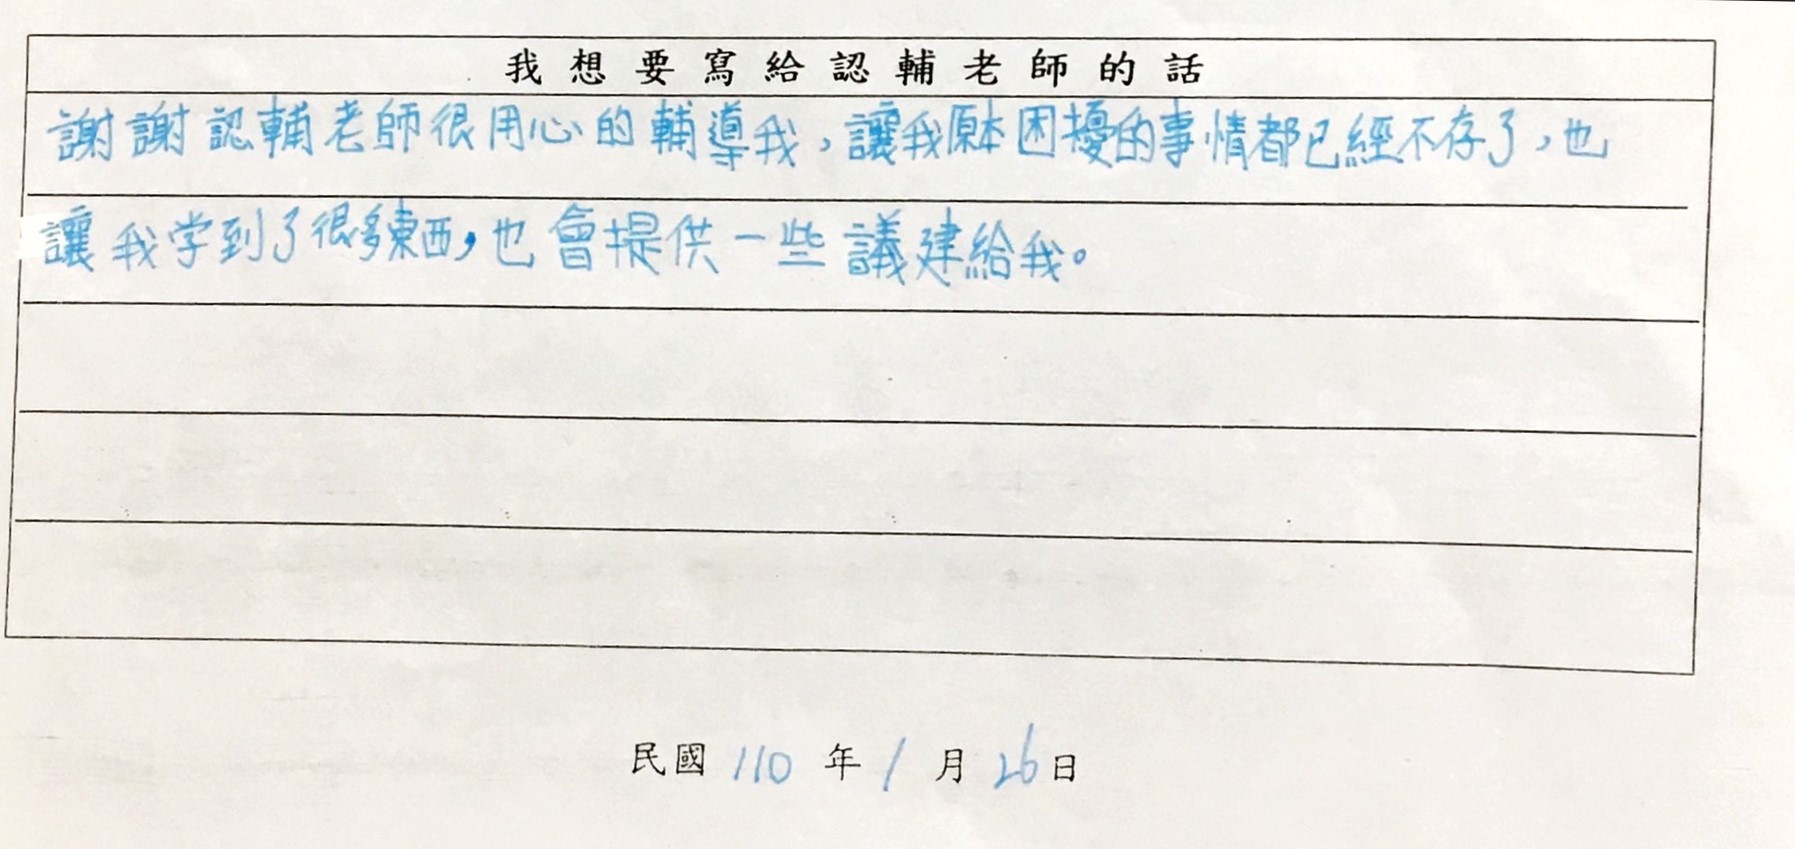 我想要寫給認輔老師的話
謝謝認輔老師很用心的輔導我，讓我原本困擾的事情都已經不存了，也
讓我学到了很多東西，也會提供一些議建給我。
民國 110 年 1 月 26 日